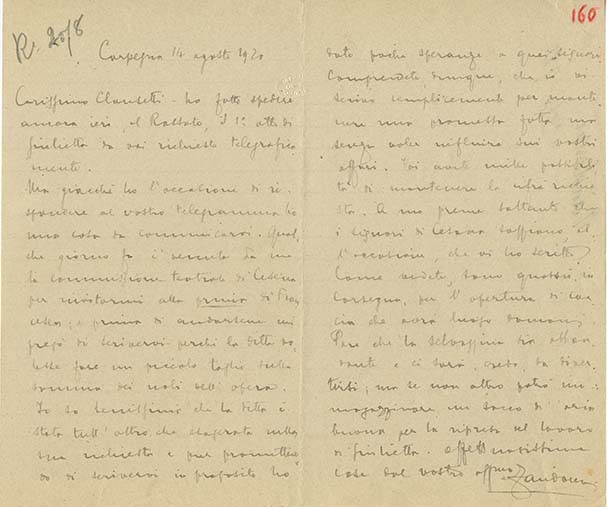 160
R. 20/8
Carpegna 14 agosto 1920
Carissimo Clausetti - ho fatto spedire
ancora ieri, al Rossato, il 1º atto di
Giulietta da voi richiesto telegrafica
mente.
Ma giacchè ho l'occasione di ri
spondere al vostro telegramma ho
una cosa da comunicarvi. Qual
che giorno fa è venuta da me
la commissione teatrale di Cesena
per invitarmi alla prima di Fran
cesca; e prima di andarsene mi
pregò di scrivervi perchè la ditta vo
lesse fare un piccolo taglio sulla
somma dei noli dell'opera.
Io so benissimo che la ditta è
stata tutt'altro che esagerata nella
sua richiesta e pur prometten
do di scrivervi in proposito ho
dato poche speranze a quei signori
Comprendete, dunque, che io vi
scrivo semplicemente per mante
nere una promessa fatta, ma
senza voler influire sui vostri
affari. Voi avete mille possibili
tà di mantenere la cifra richie
sta. A me preme soltanto che
i signori di Cesena sappiano, al
l'occasione, che vi ho scritto.
Come vedete, sono quassù, in
Carpegna, per l'apertura di cac
cia che avrà luogo domani.
Pare che la selvaggina sia abbon
dante e ci sarà, credo, da diver
tirsi; ma se non altro potrò im
magazzinare un sacco d'aria
buona per la ripresa del lavoro
di Giulietta. Affettuosissime
cose dal vostro affmo
Zandonai